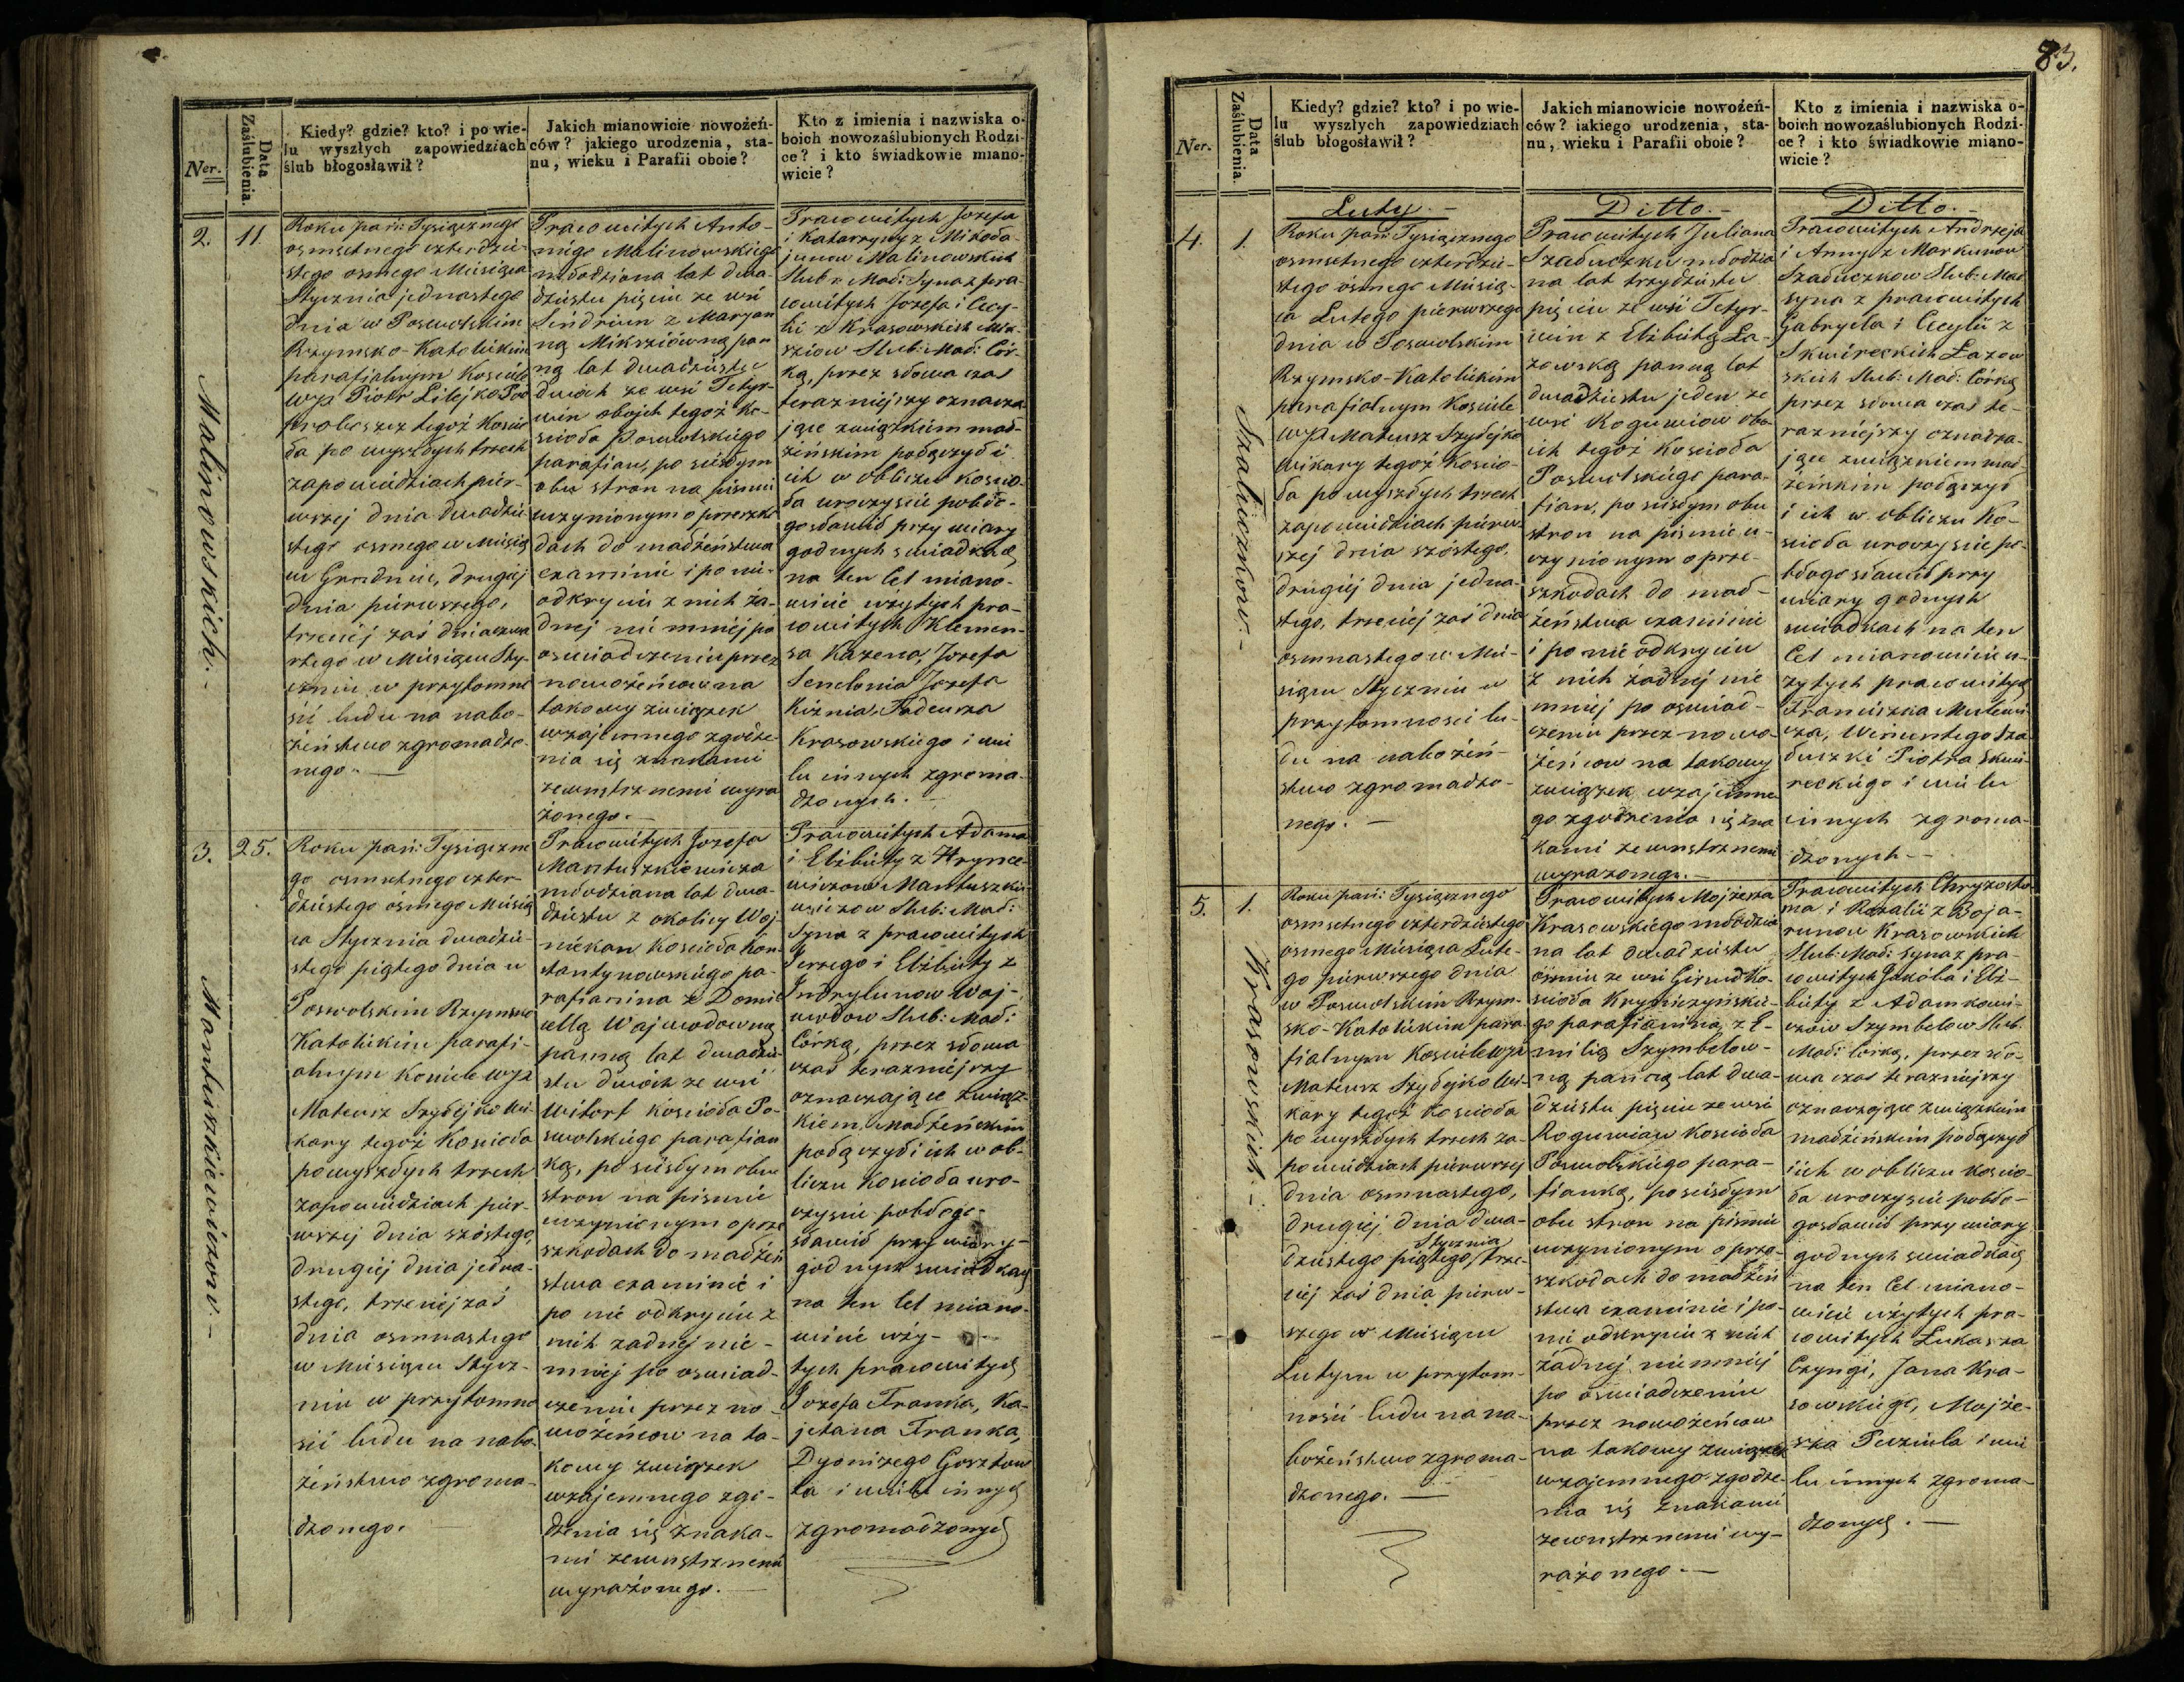 Ner.
Data
Zaślubienia.
Kiedy? gdzie? kto? i po wie-
lu wyszłych zapowiedziach
ślub błogosławił?
Jakich mianowicie nowożeń-
ców? jakiego urodzenia, sta-
nu, wieku i Parafii oboie?
Kto z imienia i nazwiska o-
boich nowozaślubionych Rodzi-
ce? i kto świadkowie miano-
wicie?
2.
11.
Malinowskich.-
Roku pań: Tysiącznego
osmsetnego czterdzie-
stego osmego Miesiąca
Stycznia jednastego
dnia w Poswolskim
Rzymsko-Katolickim
parafialnym Kosciele
WJX Piotr Lilejko Pod
proboszcz tegoż Koscio
ła po wyszłych trzech
zapowiedziach pier-
wszej dnia dwudzie
stego osmego w Miesią
cu Grudniu, drugiej
dnia pierwszego,
trzeciej zaś dnia czwa
rtego w Miesiącu Sty-
czniu w przytomno
sci ludu na nabo-
żeństwo zgromadzo-
nego.-
Pracowitych Anto-
niego Malinowskiego
młodziana lat dwa-
dziestu pięciu ze wsi
z Maryan
ną Mikszlówną pan
ną lat dwudziestu
dwóch ze wsi Tetyr-
win obojch tegoż Ko-
scioła Poswolskiego
parafian, po scisłym
obu stron na pismie
uczynionym o przeszko
dach do małżeństwa
examinie i po nie-
odkryciu z nich ża-
dnej nie mniej po
oswiadczeniu przez
nowożeńcow na
takowy związek
wzajemnego zgodze-
nia się znakami
zewnstrznemi wyra
żonego.-
Pracowitych Jozefa
i Katarzyny z Mikoła-
junow Malinowskich
Slub: Mał: Syna z pra-
cowitych Jozefa i Cecy-
lii z Krasowskich Mik-
sziow Slub: Mał: Cór-
ką, przez słowa czas
terazniejszy oznacza
jące związkiem mał-
żeńskim połączył i
ich w obliczu koscio-
ła uroczyscie pobło-
gosławił przy wiary
godnych swiadkach
na ten Cel miano-
wicie użytych pra-
cowitych Klemen-
sa Kazena, Jozefa
Jozefa
Kiznia, Tadeusza
Krasowskiego i wie
lu innych zgroma-
dzonych.-
3.
25.
Mantuszkiewiczow.-
Roku pań: Tysiączne
go osmsetnego czter-
dziestego ósmego Miesią
ca Stycznia dwudzie-
stego piątego dnia w
Poswolskim Rzymsko
Katolickim parafi-
alnym Kosciele WJX
Mateusz Szydejko Wi-
kary tegoż Koscioła
po wyszłych trzech
zapowiedziach pier-
wszej dnia szóstego,
drugiej dnia jedna-
stego, trzeciej zaś
dnia osmnastego
w Miesiącu Stycz-
niu w przytomno
sci ludu na nabo-
żeństwo zgroma-
dzonego.
Pracowitych Jozefa
Mantuszkiewicza
młodziana lat dwa-
dziestu z okolicy Woj-
niekan Koscioła Kon-
stantynowskiego pa-
rafianina z Domic
ellą Wajwodowną
panną lat dwudzie-
stu dwóch ze wsi
Witort Koscioła Po-
swolskiego parafian
ką, po scisłym obu
stron na pismie
uczynionym o prze
szkodach do małżeń
stwa examinie i
po nie odkryciu z
nich żadnej nie-
mniej po oswiad-
czeniu przez no-
wożeńcow na ta-
kowy związek
wzajemnego zgo-
dzenia się znaka-
mi zewnstrznemi
wyrażonego.-
Pracowitych Adama
i Elżbiety z Hrynce-
wiczow Mantuszkie
wiczow Slub: Mał:
Syna z pracowitych
Jerzego i Elżbiety z
Indrylunow Waj-
wodow Slub: Mał:
Córką, przez słowa
czas terazniejszy
oznaczające związ-
kiem Małżeńskim
połączył i ich w ob-
liczu Koscioła uro-
czyscie pobłogo-
sławił przy wiary-
godnych swiadkach
na ten Cel miano-
wicie uży-
tych pracowitych
Jozefa Franka, Ka-
jetana Franka,
Dyonizego Gosztow
ta i wielu innych
zgromadzonych
83.
Ner.
Data
Zaślubienia.
Kiedy? gdzie? kto? i po wie-
lu wyszłych zapowiedziach
ślub błogosławił?
Jakich mianowicie nowożeń-
ców? iakiego urodzenia, sta-
nu, wieku i Parafii oboie?
Kto z imienia i nazwiska o-
boich nowozaślubionych Rodzi-
ce? i kto świadkowie miano-
wicie?
4.
1.
Szaduczkow.-
Luty.-
Roku pań: Tysiącznego
osmsetnego czterdzie-
stego ósmego Miesią-
ca Lutego pierwszego
dnia w Poswolskim
Rzymsko-Katolickim
parafialnym Kosciele
WJX Mateusz Szydejko
Wikary tegoż Koscio-
ła po wyszłych trzech
zapowiedziach pierw-
szej dnia szóstego,
drugiej dnia jedna-
stego, trzeciej zaś dnia
osmnastego w Mie-
siącu Styczniu w
przytomnosci lu-
du na nabożeń-
stwo zgromadzo-
nego.-
Ditto.-
Pracowitych Juliana
Szaduczki młodzia
na lat trzydziestu
pięciu ze wsi Tetyr-
win z Elżbietą Ła-
zowską panną lat
dwadziestu jeden ze
wsi Roguwiow obo-
ich tegoż Koscioła
Poswolskiego para-
fian, po scisłym obu
stron na pismie u-
czynionym o prze-
szkodach do mał-
żeństwa examinie
i po nie odkryciu
z nich żadnej nie
mniej po oswiad-
czeniu przez nowo-
żeńcow na takowy
związek wzajemne
go zgodzenia się zna
kami zewnstrznemi
wyrażonego.-
Ditto.-
Pracowitych Andrzeja
i Anny z Markunow
Szaduczkow Slub: Mał
syna z pracowitych
Gabryela i Cecylii z
Skwireckich Łazow
skich Slub: Mał: Córką
przez słowa czas te-
razniejszy oznacza-
jące związkiem mał-
żeńskim połączył
i ich w obliczu Ko-
scioła uroczyscie po-
błogosławił przy
wiary godnych
swiadkach na ten
Cel mianowicie u-
żytych pracowitych
Franciszka Mulewi
cza, Wincentego Sza
duszki Piotra Skwi-
reckiego i wielu
innych zgroma-
dzonych.-
5.
1.
Krasowskich.-
Roku pań: Tysiącznego
osmsetnego czterdziestego
osmego Miesiąca Lute-
go pierwszego dnia
w Poswolskim Rzym-
sko-Katolickim para-
fialnym Kosciele WJX
Mateusz Szydejko Wi-
kary tegoż Koscioła
po wyszłych trzech za-
powiedziach pierwszej
dnia osmnastego,
drugiej dnia dwa-
dziestego piątego Stycznia, trze-
ciej zaś dnia pierw-
szego w Miesiącu
Lutym w przytom-
nosci ludu na na-
bożeństwo zgroma-
dzonego.-
Pracowitych Mojżesza
Krasowskiego młodzia
na lat dwadziestu
ósmiu ze wsi Girsud Ko-
scioła Krynczyńskie-
go parafianina z E-
milią Szymbelow-
ną panną lat dwa-
dziestu pięciu ze wsi
Roguwiaw Koscioła
Poswolskiego para-
fianką, po scisłym
obu stron na pismie
uczynionym o prze-
szkodach do małżeń
stwa examinie i po-
nie odkryciu z nich
żadnej niemniej
po oswiadczeniu
przez nowożeńcow
na takowy związek
wzajemnego zgodze-
nia się znakami
zewnstrznemi wy-
rażonego.-
Pracowitych Chryzosto
ma i Rozalii z Boja-
runow Krasowskich
Slub: Mał: syna z pra-
cowitych Jakóba i Elż-
biety z Adamkowi-
czow Szymbelow Slub.
Mał: córką, przez sło-
wa czas terazniejszy
oznaczające związkiem
małżeńskim połączył
i ich w obliczu koscio-
ła uroczyscie pobło-
gosławił przy wiary
godnych swiadkach
na ten Cel miano-
wicie użytych pra-
cowitych Łukasza
Czyngi, Jana Kra-
sowskiego, Mojże-
sza i wie
lu innych zgroma-
dzonych.-